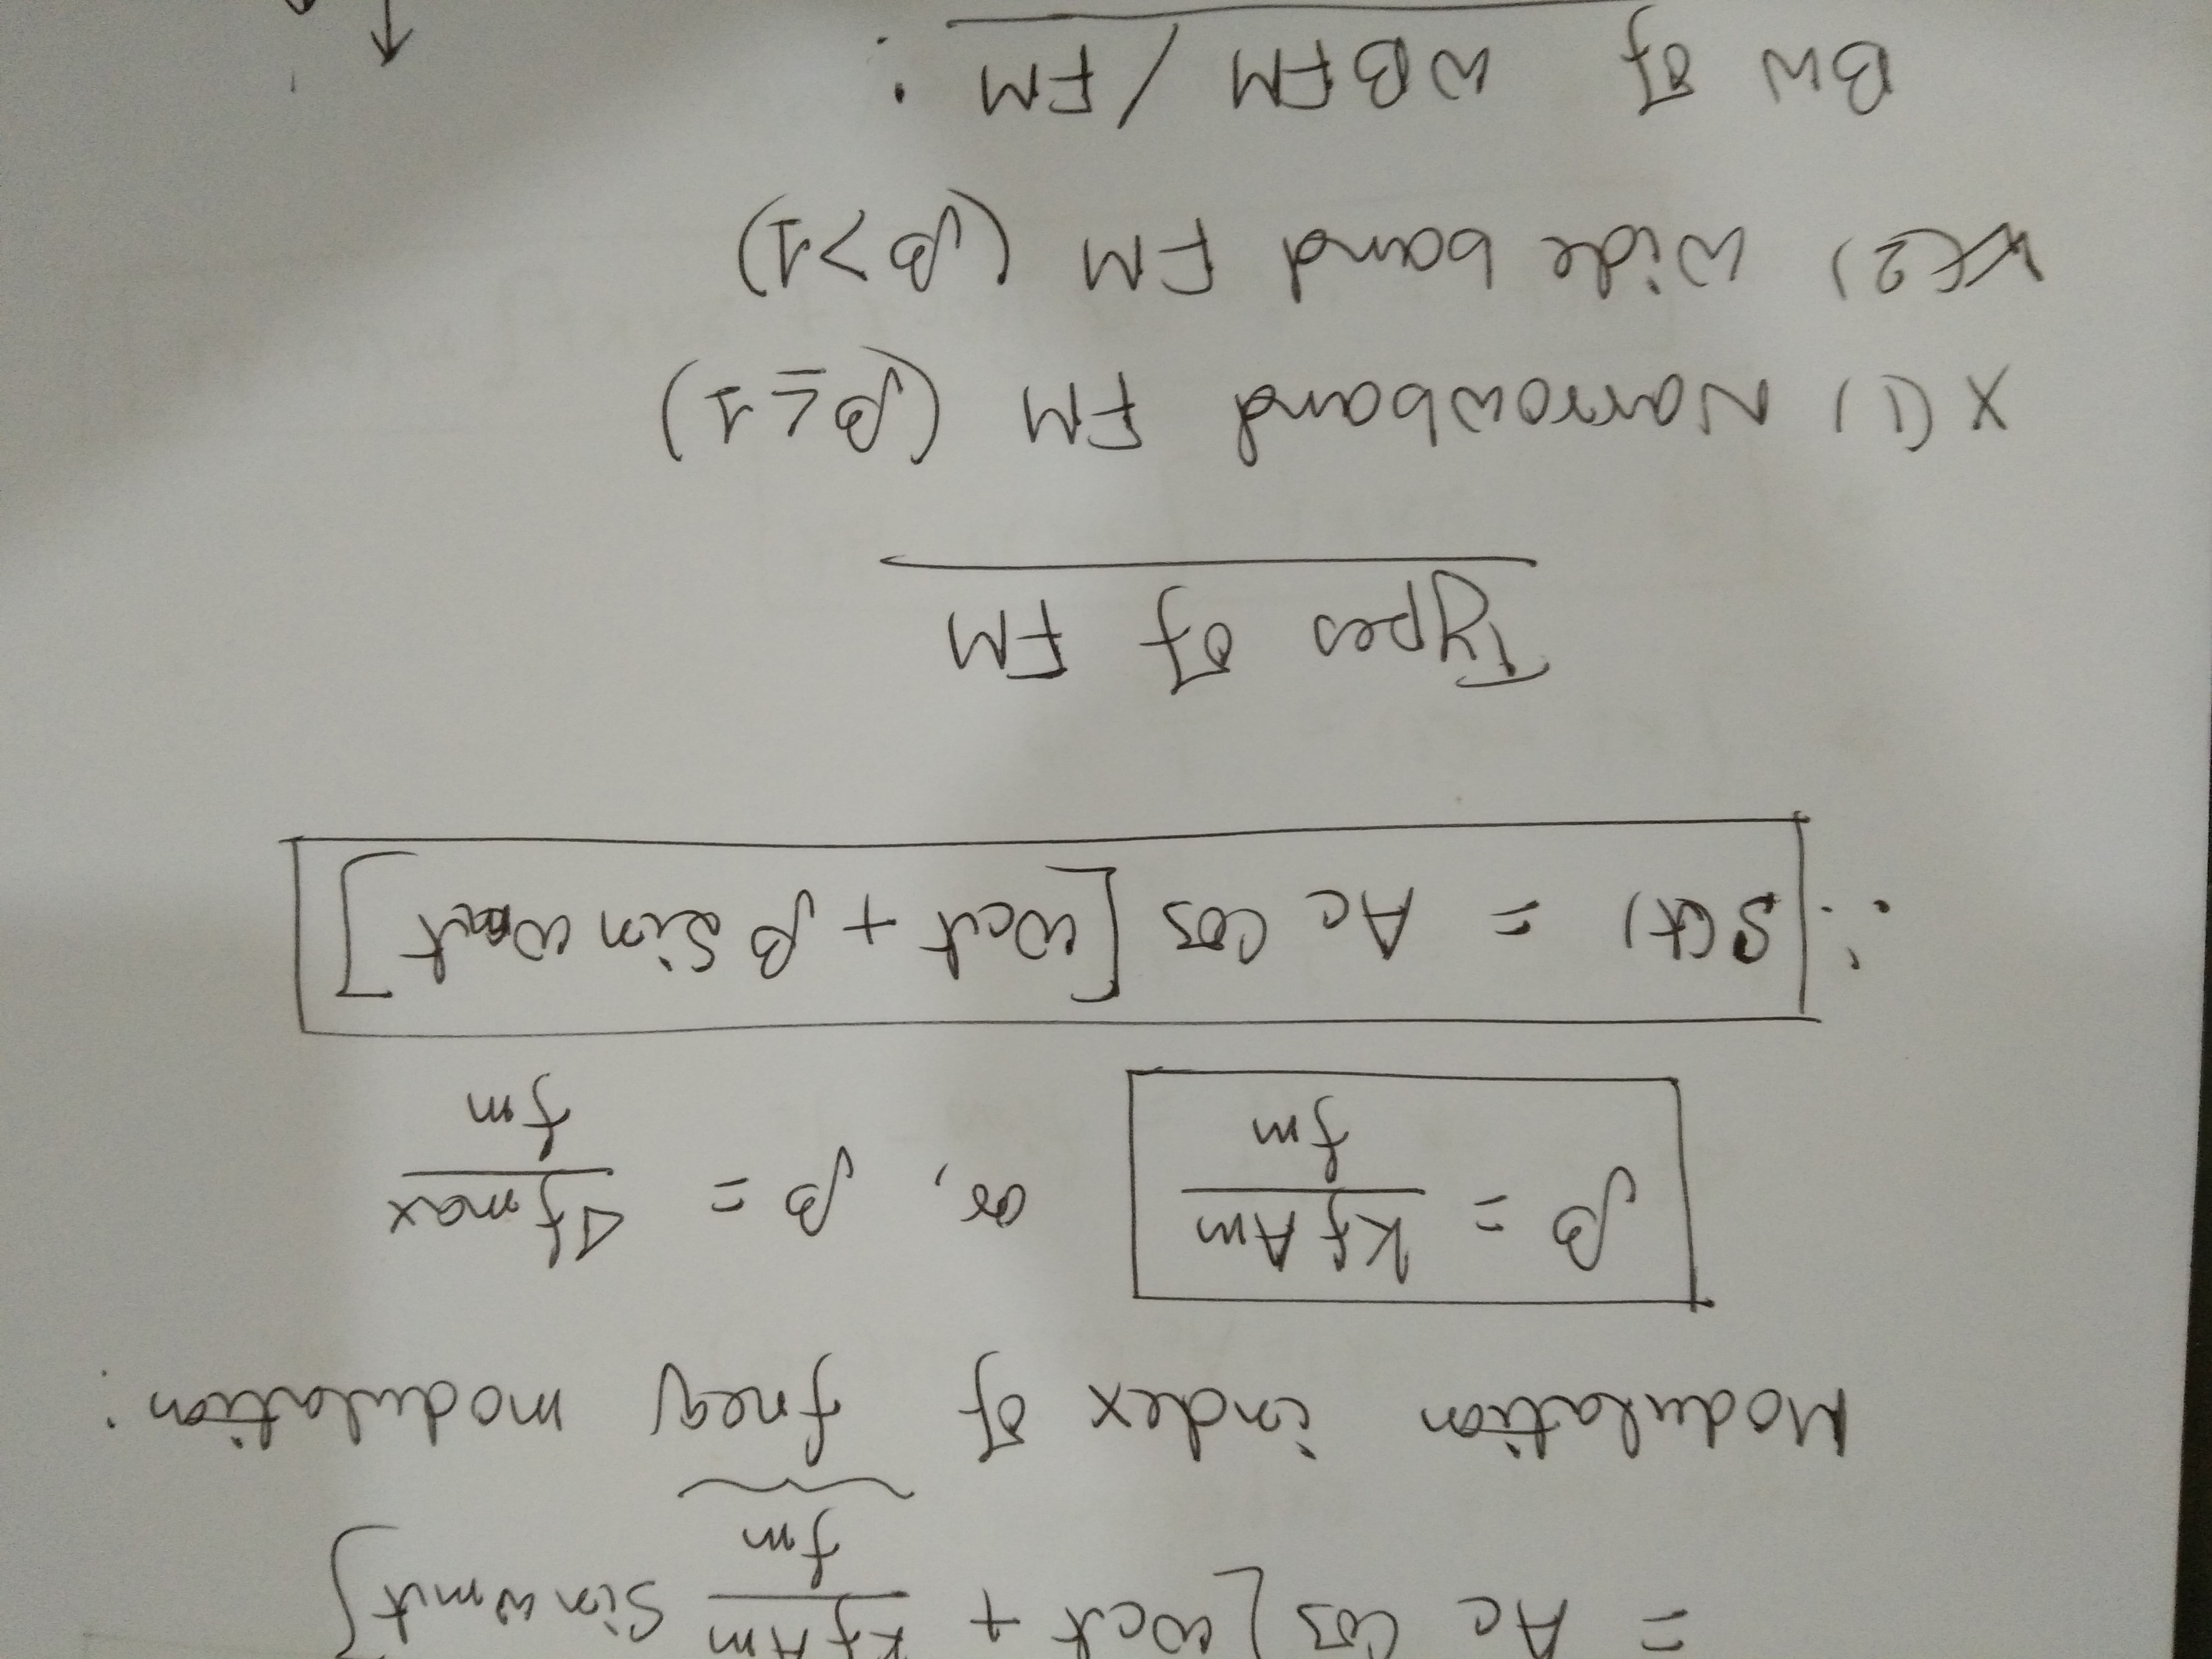 = Ac Cos [ωct + KfAm/fm Sin ωmt]
Modulation index of freq modulation:
β = KfAm/fm or, β = Δfmax/fm
∴ S(t) = Ac Cos [ωct + β Sin ωmt]
Types of FM
X (1) Narrowband FM (β ≤ 1)
(2) Wide band FM (β > 1)
BW of WBFM / FM :